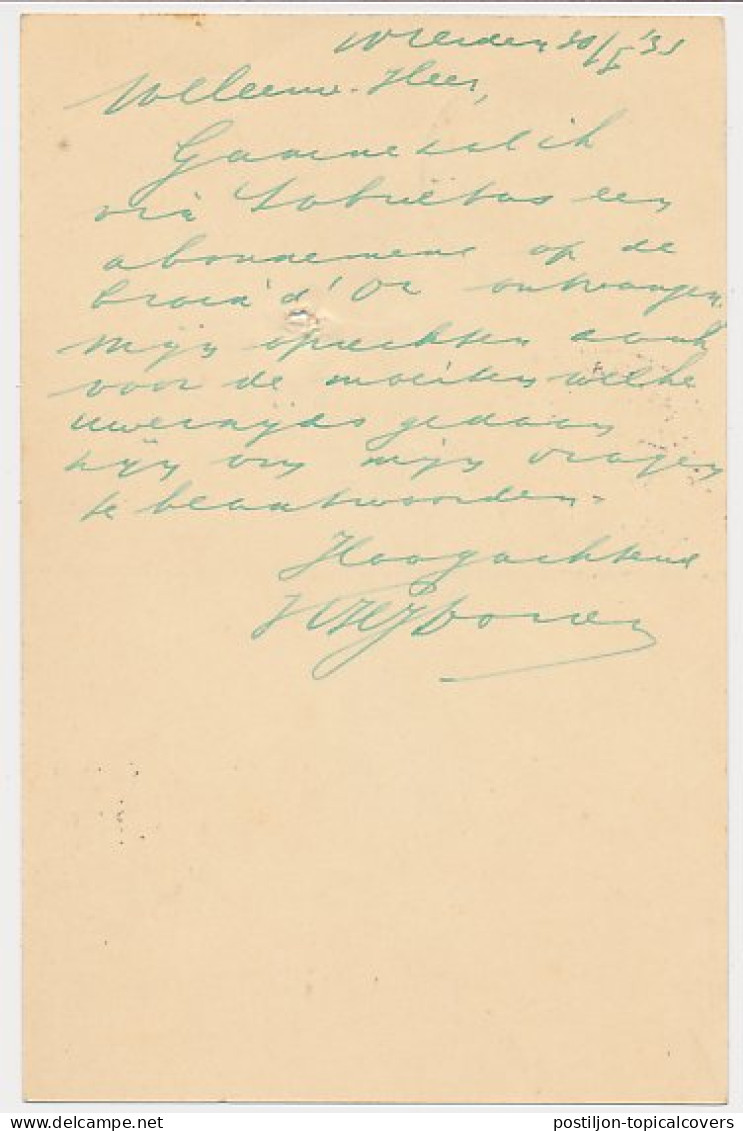 Wierden 30/I '31
Weleerw. Heer,
Gaarne zal ik
via Sobrietas een
abonnement op de
Croix d'Or ontvangen.
Mijn oprechten dank
voor de moeiten welke
uwerzijds gedaan
zijn om mijn vragen
te beantwoorden.
Hoogachtend
Delcampe.net
postiljon-topicalcovers